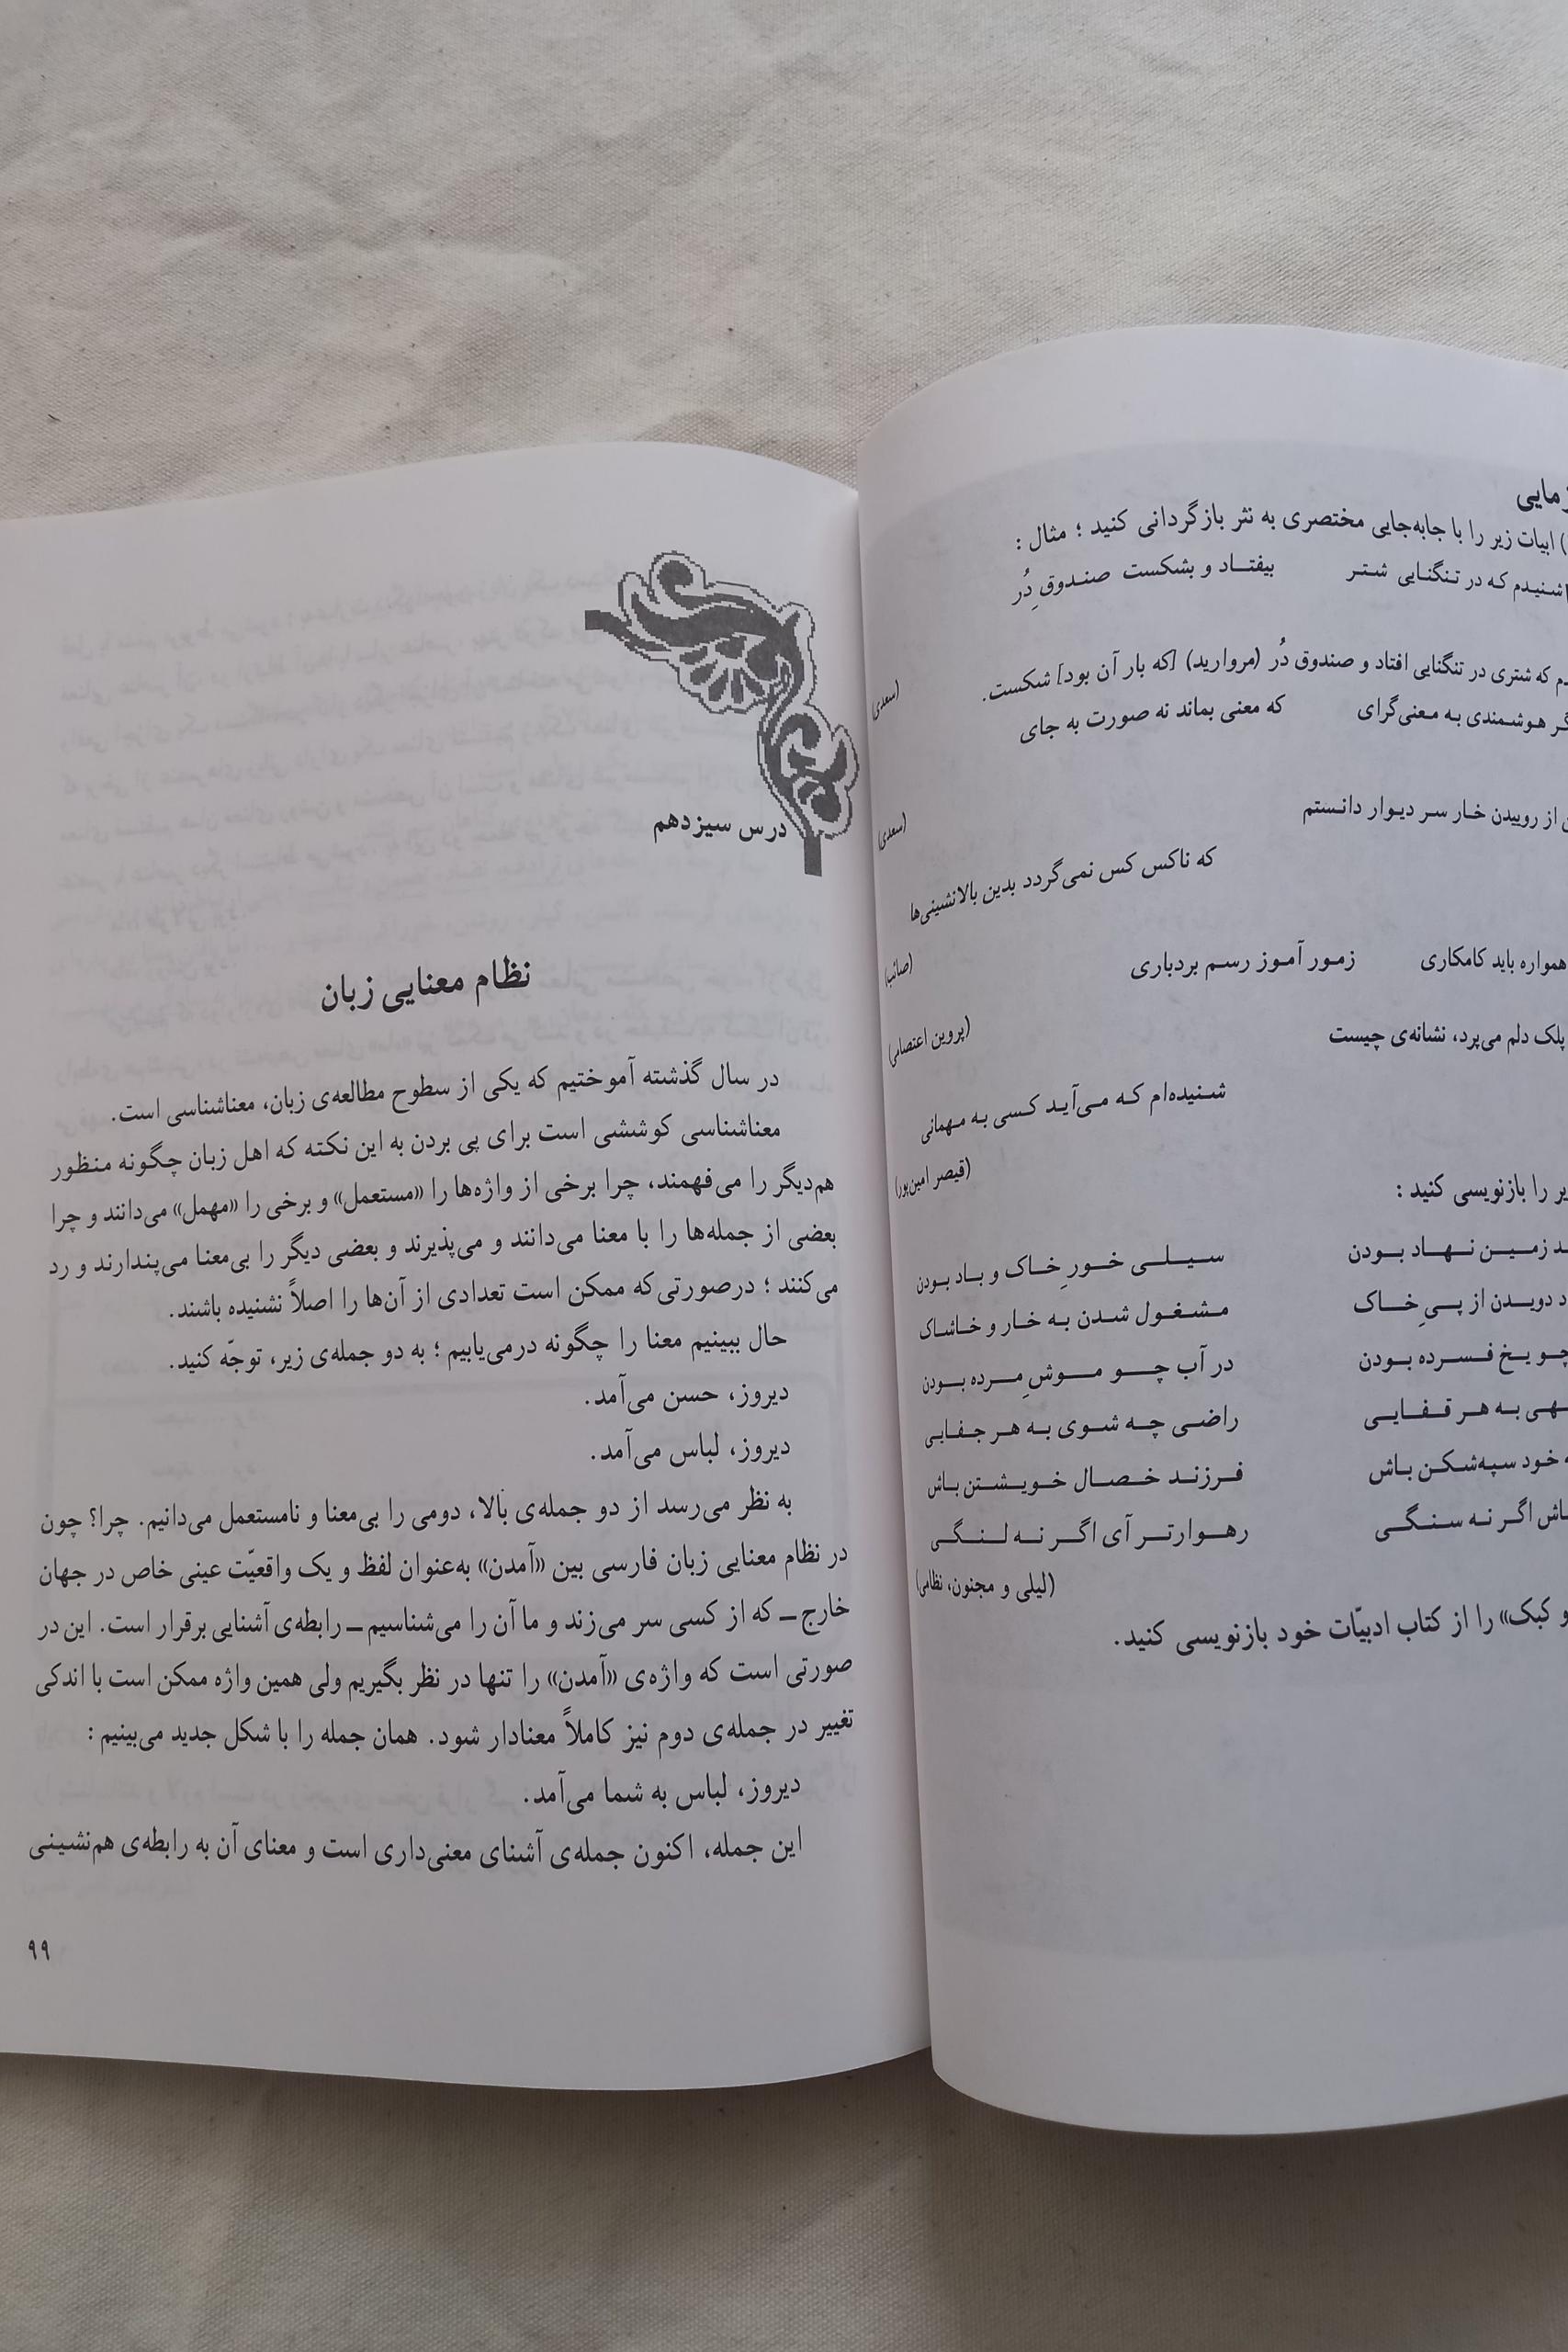 ابیات زیر را با جابه‌جایی مختصری به نثر بازگردانی کنید ؛ مثال :
شنیدم که در تنگنایی شتر بیفتاد و بشکست صندوق دُر
(سعدی)
که شتری در تنگنایی افتاد و صندوق دُر (مروارید) [که بار آن بود] شکست.
هوشمندی به معنی‌گرای که معنی بماند نه صورت به جای
(سعدی)
از روییدن خار سر دیوار دانستم
که ناکس کس نمی‌گردد بدین بالانشینی‌ها
(صائب)
همواره باید کامکاری زمور آموز رسم بردباری
(پروین اعتصامی)
پلک دلم می‌پرد، نشانه‌ی چیست
شنیده‌ام که می‌آید کسی به مهمانی
(قیصر امین‌پور)
را بازنویسی کنید :
زمین نهاد بودن سیلی خورِ خاک و باد بودن
دویدن از پیِ خاک مشغول شدن به خار و خاشاک
چو یخ فسرده بودن در آب چو موشِ مرده بودن
به هر قفایی راضی چه شوی به هر جفایی
خود سپه‌شکن باش فرزند خصال خویشتن باش
اگر نه سنگی رهوارتر آی اگر نه لنگی
(لیلی و مجنون، نظامی)
و کبک» را از کتاب ادبیّات خود بازنویسی کنید.
درس سیزدهم
نظام معنایی زبان
در سال گذشته آموختیم که یکی از سطوح مطالعه‌ی زبان، معناشناسی است.
معناشناسی کوششی است برای پی بردن به این نکته که اهل زبان چگونه منظور
هم‌دیگر را می‌فهمند، چرا برخی از واژه‌ها را «مستعمل» و برخی را «مهمل» می‌دانند و چرا
بعضی از جمله‌ها را با معنا می‌دانند و می‌پذیرند و بعضی دیگر را بی‌معنا می‌پندارند و رد
می‌کنند ؛ درصورتی‌که ممکن است تعدادی از آن‌ها را اصلاً نشنیده باشند.
حال ببینیم معنا را چگونه درمی‌یابیم ؛ به دو جمله‌ی زیر، توجّه کنید.
دیروز، حسن می‌آمد.
دیروز، لباس می‌آمد.
به نظر می‌رسد از دو جمله‌ی بالا، دومی را بی‌معنا و نامستعمل می‌دانیم. چرا؟ چون
در نظام معنایی زبان فارسی بین «آمدن» به‌عنوان لفظ و یک واقعیّت عینی خاص در جهان
خارج ــ که از کسی سر می‌زند و ما آن را می‌شناسیم ــ رابطه‌ی آشنایی برقرار است. این در
صورتی است که واژه‌ی «آمدن» را تنها در نظر بگیریم ولی همین واژه ممکن است با اندکی
تغییر در جمله‌ی دوم نیز کاملاً معنادار شود. همان جمله را با شکل جدید می‌بینیم :
دیروز، لباس به شما می‌آمد.
این جمله، اکنون جمله‌ی آشنای معنی‌داری است و معنای آن به رابطه‌ی هم‌نشینی
۹۹